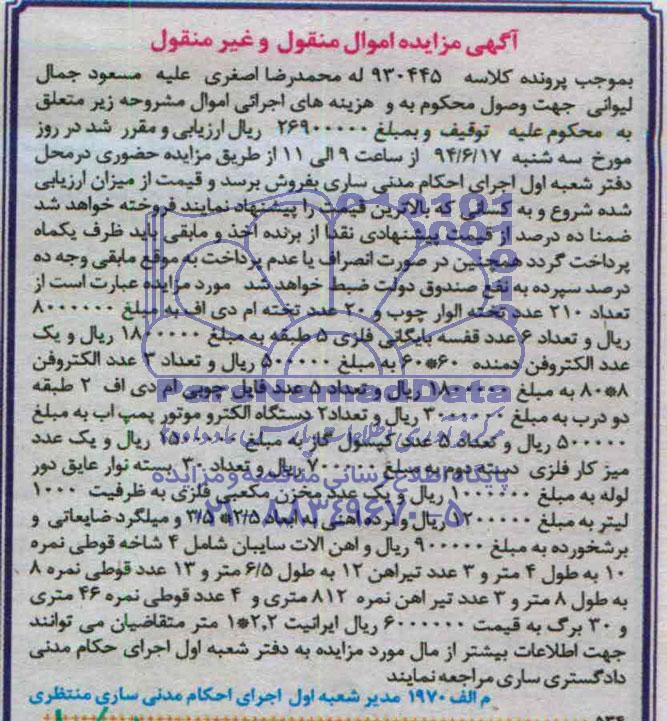 آگهی مزایده اموال منقول و غیر منقول
بموجب پرونده کلاسه ۹۳۰۴۴۵ له محمدرضا اصغری علیه مسعود جمال
لیوانی جهت وصول محکوم به و هزینه های اجرائی اموال مشروحه زیر متعلق
به محکوم علیه توقیف و بمبلغ ۲۶۹۰۰۰۰۰ ریال ارزیابی و مقرر شد در روز
مورخ سه شنبه ۹۴/۶/۱۷ از ساعت ۹ الی ۱۱ از طریق مزایده حضوری درمحل
دفتر شعبه اول اجرای احکام مدنی ساری بفروش برسد و قیمت از میزان ارزیابی
شده شروع و به کسانی که بالاترین قیمت را پیشنهاد نمایند فروخته خواهد شد
ضمنا ده درصد از قیمت پیشنهادی نقدا از برنده اخذ و مابقی باید ظرف یکماه
پرداخت گردد همچنین در صورت انصراف یا عدم پرداخت به موقع مابقی وجه ده
درصد سپرده به نفع صندوق دولت ضبط خواهد شد مورد مزایده عبارت است از
تعداد ۲۱۰ عدد تخته الوار چوب و ۲۰ عدد تخته ام دی اف به مبلغ ۸۰۰۰۰۰۰
ریال و تعداد ۶ عدد قفسه بایگانی فلزی ۵ طبقه به مبلغ ۱۸۰۰۰۰۰ ریال و یک
عدد الکتروفن دمنده ۶۰*۶۰ به مبلغ ۵۰۰۰۰۰ ریال و تعداد ۳ عدد الکتروفن
۸*۸۰ به مبلغ ۱۸۰۰۰۰۰ ریال و تعداد ۵ عدد فایل چوبی ام دی اف ۲ طبقه
دو درب به مبلغ ۳۰۰۰۰۰۰ ریال و تعداد۲ دستگاه الکترو موتور پمپ اب به مبلغ
۵۰۰۰۰۰ ریال و تعداد ۵ عدد کپسول گاز به مبلغ ۱۵۰۰۰۰۰ ریال و یک عدد
میز کار فلزی دسته دوم به مبلغ ۷۰۰۰۰۰ ریال و تعداد ۳۰ بسته نوار عایق دور
لوله به مبلغ ۱۰۰۰۰۰۰ ریال و یک عدد مخزن مکعبی فلزی به ظرفیت ۱۰۰۰
لیتر به مبلغ ۱۲۰۰۰۰۰ ریال و نرده اهنی به ابعاد ۲/۵*۳/۵ و میلگرد ضایعاتی و
برشخورده به مبلغ ۹۰۰۰۰۰ ریال و اهن الات سایبان شامل ۴ شاخه قوطی نمره
۱۰ به طول ۴ متر و ۳ عدد تیراهن ۱۲ به طول ۶/۵ متر و ۱۳ عدد قوطی نمره ۸
به طول ۸ متر و ۳ عدد تیر اهن نمره ۸۱۲ متری و ۴ عدد قوطی نمره ۴۶ متری
و ۳۰ برگ به قیمت ۶۰۰۰۰۰۰ ریال ایرانیت ۲,۲*۱ متر متقاضیان می توانند
جهت اطلاعات بیشتر از مال مورد مزایده به دفتر شعبه اول اجرای حکام مدنی
دادگستری ساری مراجعه نمایند
م الف ۱۹۷۰ مدیر شعبه اول اجرای احکام مدنی ساری منتظری
ParsNamadData
پایگاه اطلاع رسانی مناقصه و مزایده
۰۲۱-۸۸۳۴۹۶۷۰-۵